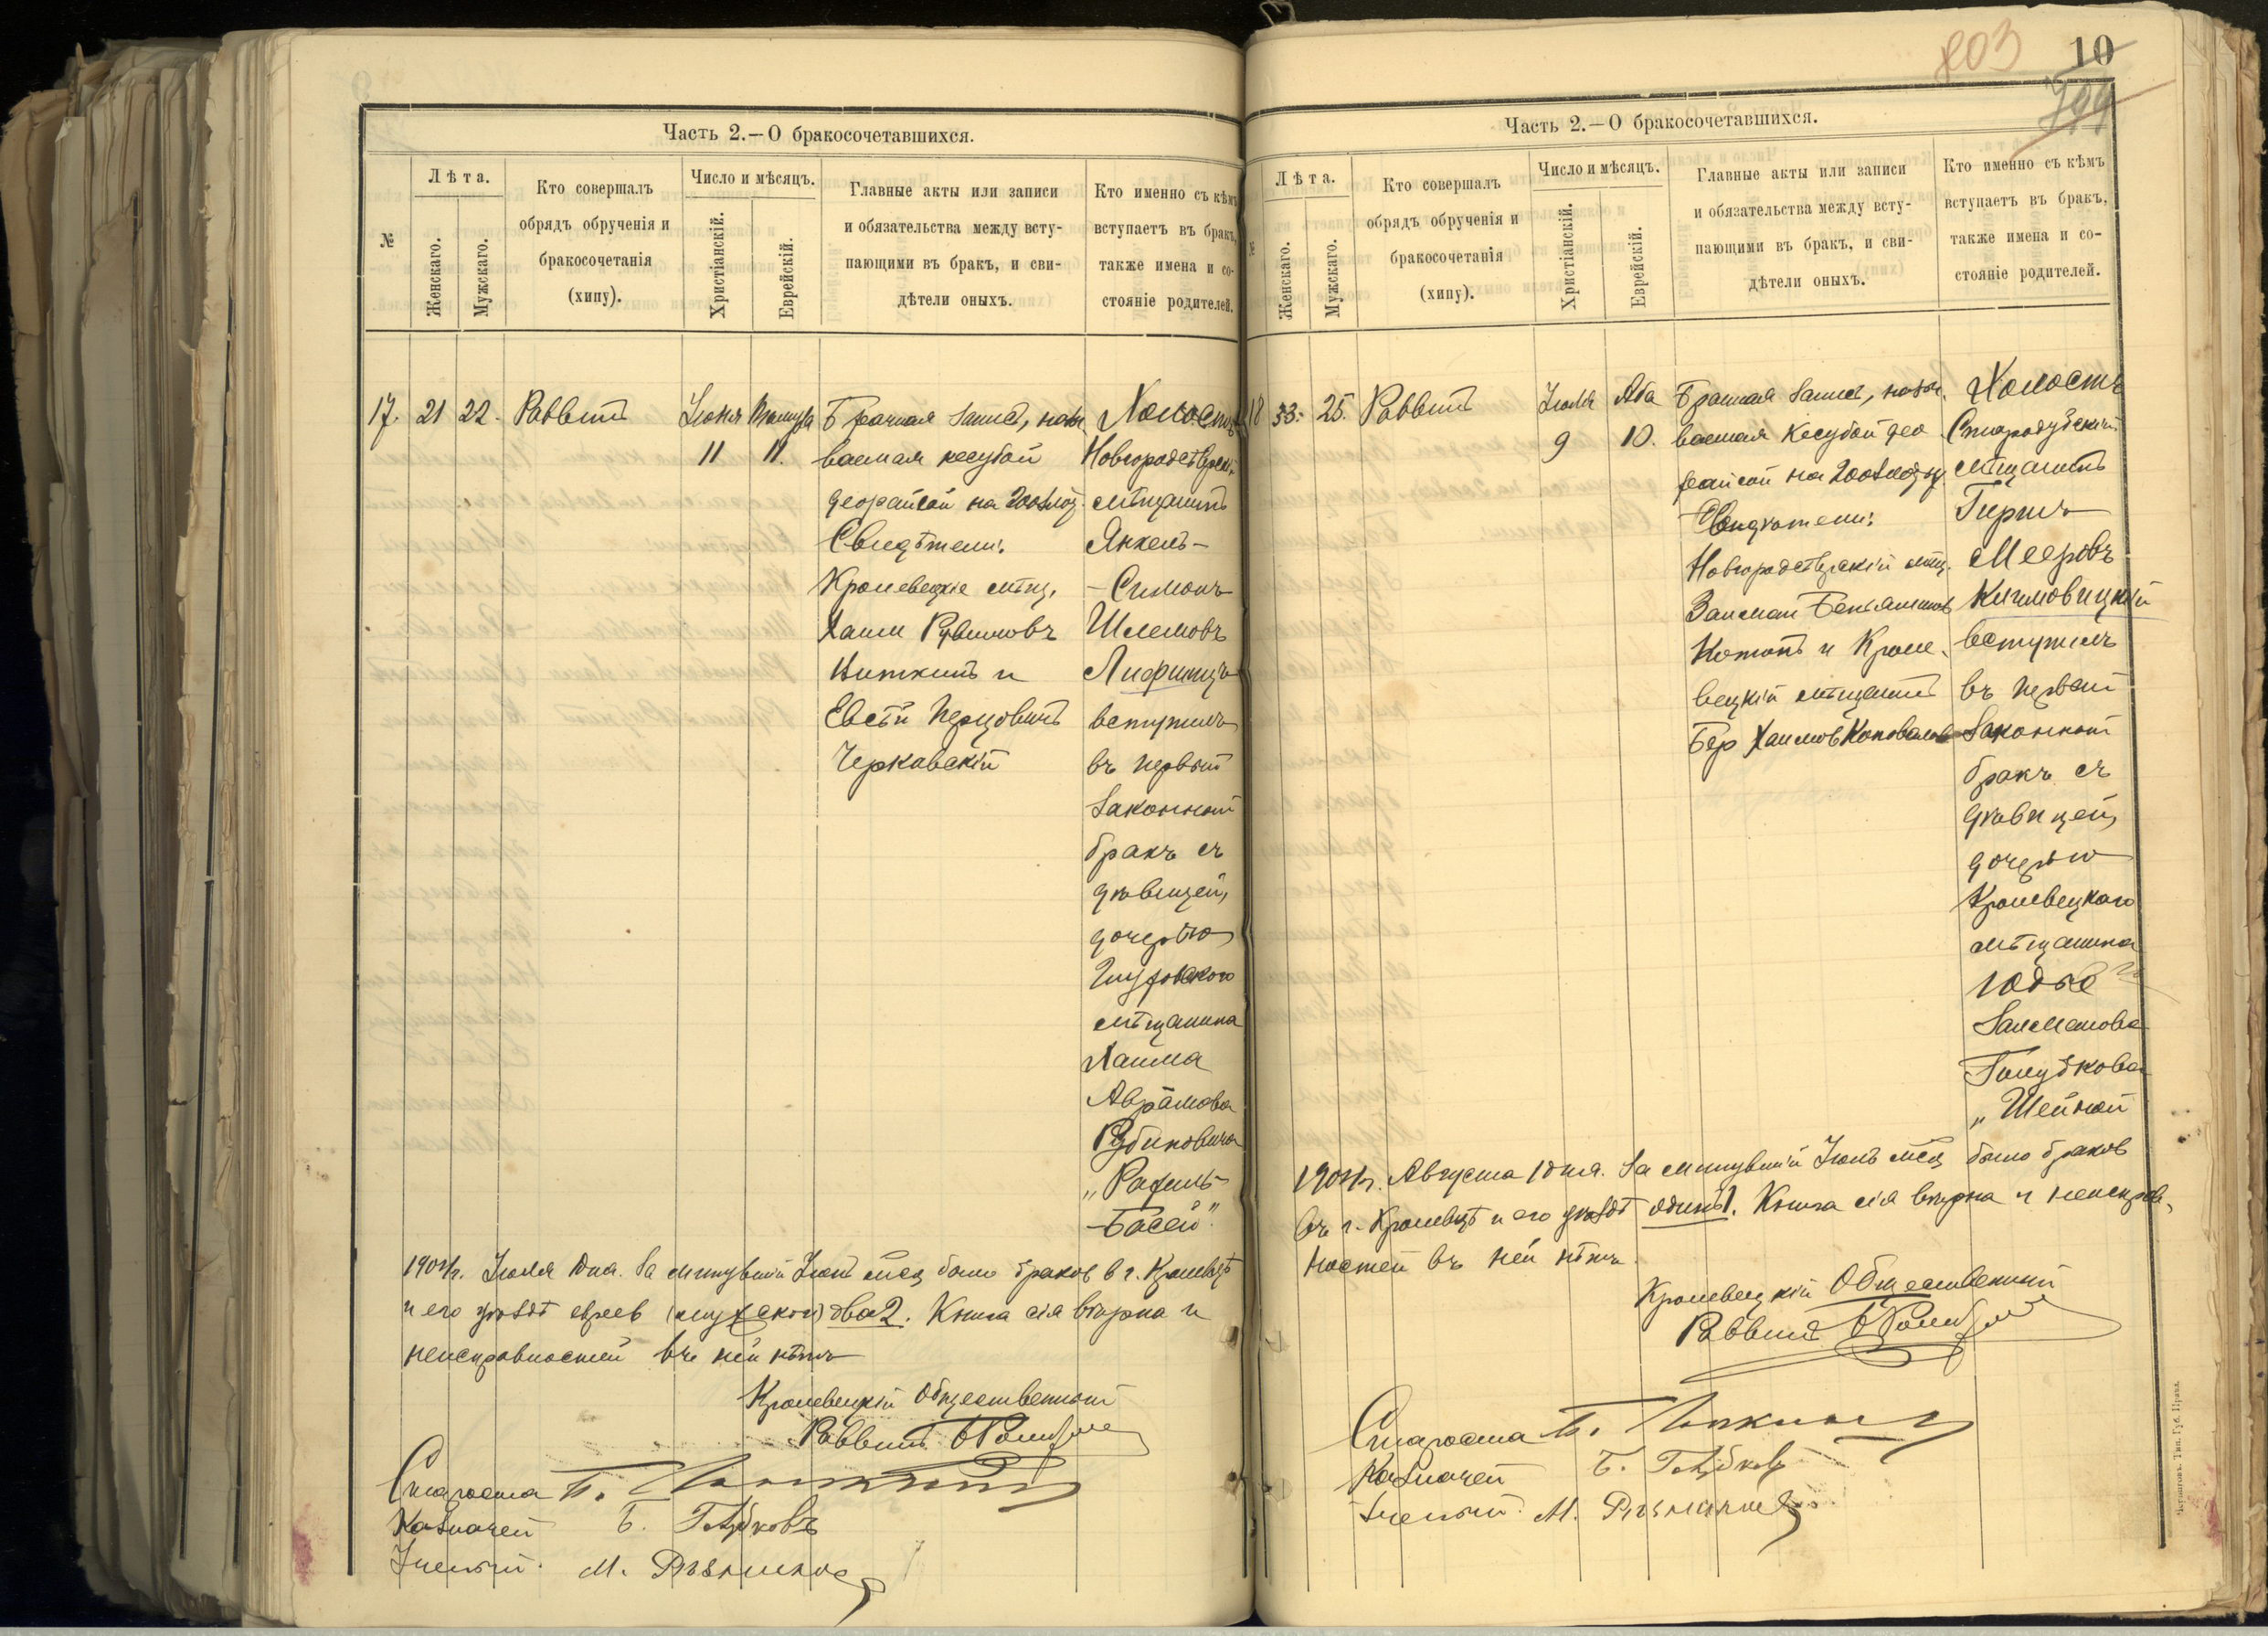 Часть 2.—О бракосочетавшихся.
№
Лѣта.
Женскаго.
Мужскаго.
Кто совершалъ
обрядъ обрученія и
бракосочетанія
(хипу).
Число и мѣсяцъ.
Христіанскій.
Еврейскій.
Главные акты или записи
и обязательства между всту-
пающими въ бракъ, и сви-
дѣтели оныхъ.
Кто именно съ кѣмъ
вступаетъ въ бракъ,
также имена и со-
стояніе родителей.
17. 21 22. Раввинъ
Іюня
11
11.
Брачная запись, назы
ваемая кесубой
деорайсой на 200 злот.
Свидѣтели:
Кролевецкіе мѣщ.
Хаим Рувимовъ
Виткинъ и
Евсѣй Перцовичъ
Черкавскій
Холостъ
Новгородсѣверскій
мѣщанинъ
Янкель-
-Симонъ
Шлемовъ
Лифшицъ
вступилъ
въ первый
законный
бракъ съ
дѣвицей,
дочерью
мѣщанина
Хаима
Аврамова
Рубиновича
„Рахиль-
Басей".
1904 г. Іюля 1 дня. За минувшій Іюнь мѣсяц было браков в г. Кролевцѣ
и его уѣздѣ евреев два 2. Книга сія вѣрна и
неисправностей въ ней нѣтъ
Кролевецкій Общественный
Раввинъ
Староста
Казначей Б. Голубковъ
Ученый. М.
803
10
Часть 2.—О бракосочетавшихся.
№
Лѣта.
Женскаго.
Мужскаго.
Кто совершалъ
обрядъ обрученія и
бракосочетанія
(хипу).
Число и мѣсяцъ.
Христіанскій.
Еврейскій.
Главные акты или записи
и обязательства между всту-
пающими въ бракъ, и сви-
дѣтели оныхъ.
Кто именно съ кѣмъ
вступаетъ въ бракъ,
также имена и со-
стояніе родителей.
18 33. 25. Раввинъ
Іюля
9
Аба
10.
Брачная запись, назы-
ваемая кесубой део
райсой на 200 злоту
Свидѣтели:
Новгородсѣверскій мѣщ.
Залман Беньяминов
Коганъ и Кроле-
вецкій мѣщанинъ
Бер Хаимов Коновалов
Холостъ
Стародубскій
мѣщанинъ
Гиршъ
Мееровъ
Климовицкій
вступилъ
въ первый
законный
бракъ съ
дѣвицей,
дочерью
Кролевецкаго
мѣщанина
Юдые
Залманова
Голубкова
„Шейной
1904 г. Августа 1 дня. За минувшій Іюль мѣсяц было браков
въ г. Кролевцѣ и его уѣздѣ одинъ 1. Книга сія вѣрна и неисправ-
ностей въ ней нѣтъ.
Кролевецкій Общественный
Раввинъ
Староста
Казначей Б. Голубков
Ученый. М.
Черниговъ. Тип. Губ. Правл.